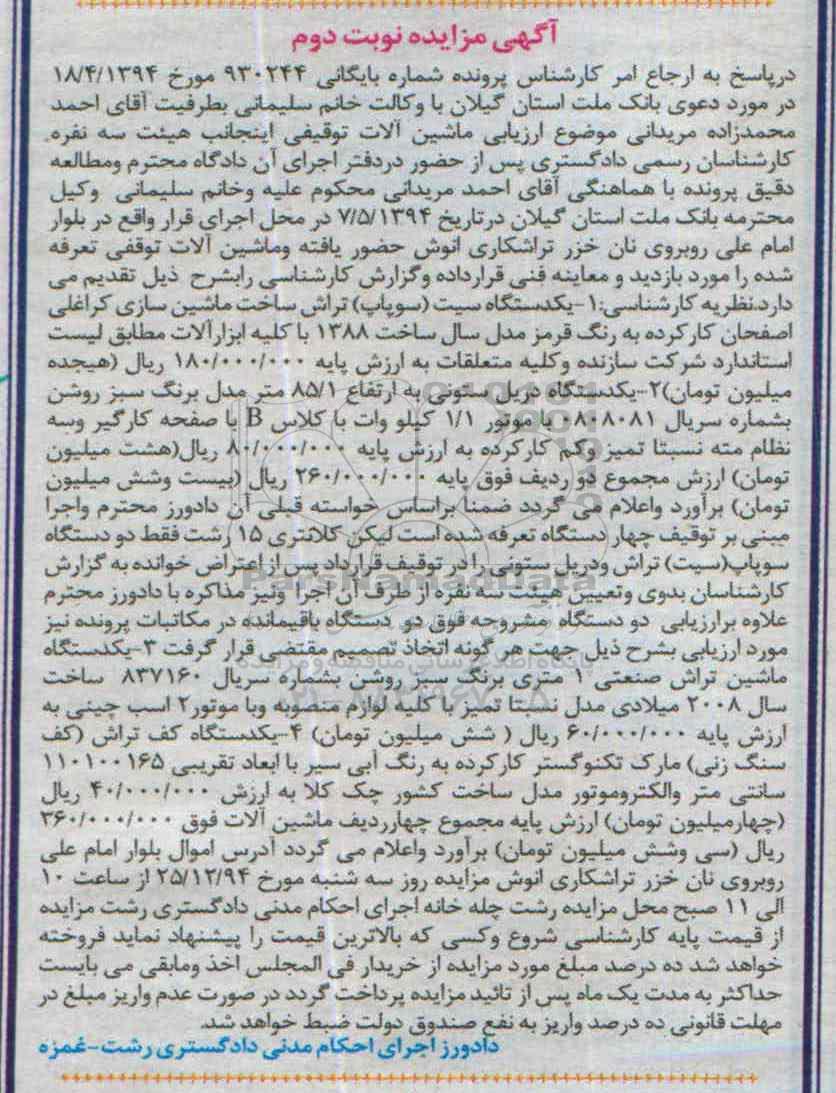 آگهی مزایده نوبت دوم
درپاسخ به ارجاع امر کارشناس پرونده شماره بایگانی ۹۳۰۲۴۴ مورخ ۱۸/۴/۱۳۹۴
در مورد دعوی بانک ملت استان گیلان با وکالت خانم سلیمانی بطرفیت آقای احمد
محمدزاده مریدانی موضوع ارزیابی ماشین آلات توقیفی اینجانب هیئت سه نفره
کارشناسان رسمی دادگستری پس از حضور دردفتر اجرای آن دادگاه محترم ومطالعه
دقیق پرونده با هماهنگی آقای احمد مریدانی محکوم علیه وخانم سلیمانی وکیل
محترمه بانک ملت استان گیلان درتاریخ ۷/۵/۱۳۹۴ در محل اجرای قرار واقع در بلوار
امام علی روبروی نان خزر تراشکاری انوش حضور یافته وماشین آلات توقفی تعرفه
شده را مورد بازدید و معاینه فنی قرارداده وگزارش کارشناسی رابشرح ذیل تقدیم می
دارد.نظریه کارشناسی:۱-یکدستگاه سیت (سوپاپ) تراش ساخت ماشین سازی کراغلی
اصفحان کارکرده به رنگ قرمز مدل سال ساخت ۱۳۸۸ با کلیه ابزارآلات مطابق لیست
استاندارد شرکت سازنده وکلیه متعلقات به ارزش پایه ۱۸۰/۰۰۰/۰۰۰ ریال (هیجده
میلیون تومان)۲-یکدستگاه دریل ستونی به ارتفاع ۸۵/۱ متر مدل برنگ سبز روشن
بشماره سریال ۰۸۰۸۰۸۱ با موتور ۱/۱ کیلو وات با کلاس B با صفحه کارگیر وسه
نظام مته نسبتا تمیز وکم کارکرده به ارزش پایه ۸۰/۰۰۰/۰۰۰ ریال(هشت میلیون
تومان) ارزش مجموع دو ردیف فوق پایه ۲۶۰/۰۰۰/۰۰۰ ریال (بیست وشش میلیون
تومان) برآورد واعلام می گردد ضمنا براساس خواسته قبلی آن دادورز محترم واجرا
مبنی بر توقیف چهار دستگاه تعرفه شده است لیکن کلانتری ۱۵ رشت فقط دو دستگاه
سوپاپ(سیت) تراش ودریل ستونی را در توقیف قرارداد پس از اعتراض خوانده به گزارش
کارشناسان بدوی وتعیین هیئت سه نفره از طرف آن اجرا ونیز مذاکره با دادورز محترم
علاوه برارزیابی دو دستگاه مشروحه فوق دو دستگاه باقیمانده در مکاتبات پرونده نیز
مورد ارزیابی بشرح ذیل جهت هر گونه اتخاذ تصمیم مقتضی قرار گرفت ۳-یکدستگاه
ماشین تراش صنعتی ۱ متری برنگ سبز روشن بشماره سریال ۸۳۷۱۶۰ ساخت
سال ۲۰۰۸ میلادی مدل نسبتا تمیز با کلیه لوازم منصوبه وبا موتور۲ اسب چینی به
ارزش پایه ۶۰/۰۰۰/۰۰۰ ریال ( شش میلیون تومان) ۴-یکدستگاه کف تراش (کف
سنگ زنی) مارک تکنوگستر کارکرده به رنگ آبی سیر با ابعاد تقریبی ۱۶۵ ۱۰۰ ۱۱۰
سانتی متر والکتروموتور مدل ساخت کشور چک کلا به ارزش ۴۰/۰۰۰/۰۰۰ ریال
(چهارمیلیون تومان) ارزش پایه مجموع چهارردیف ماشین آلات فوق ۳۶۰/۰۰۰/۰۰۰
ریال (سی وشش میلیون تومان) برآورد واعلام می گردد آدرس اموال بلوار امام علی
روبروی نان خزر تراشکاری انوش مزایده روز سه شنبه مورخ ۲۵/۱۲/۹۴ از ساعت ۱۰
الی ۱۱ صبح محل مزایده رشت چله خانه اجرای احکام مدنی دادگستری رشت مزایده
از قیمت پایه کارشناسی شروع وکسی که بالاترین قیمت را پیشنهاد نماید فروخته
خواهد شد ده درصد مبلغ مورد مزایده از خریدار فی المجلس اخذ ومابقی می بایست
حداکثر به مدت یک ماه پس از تائید مزایده پرداخت گردد در صورت عدم واریز مبلغ در
مهلت قانونی ده درصد واریز به نفع صندوق دولت ضبط خواهد شد.
دادورز اجرای احکام مدنی دادگستری رشت-غمزه
ParsNamadData
پایگاه اطلاع رسانی مناقصه و مزایده